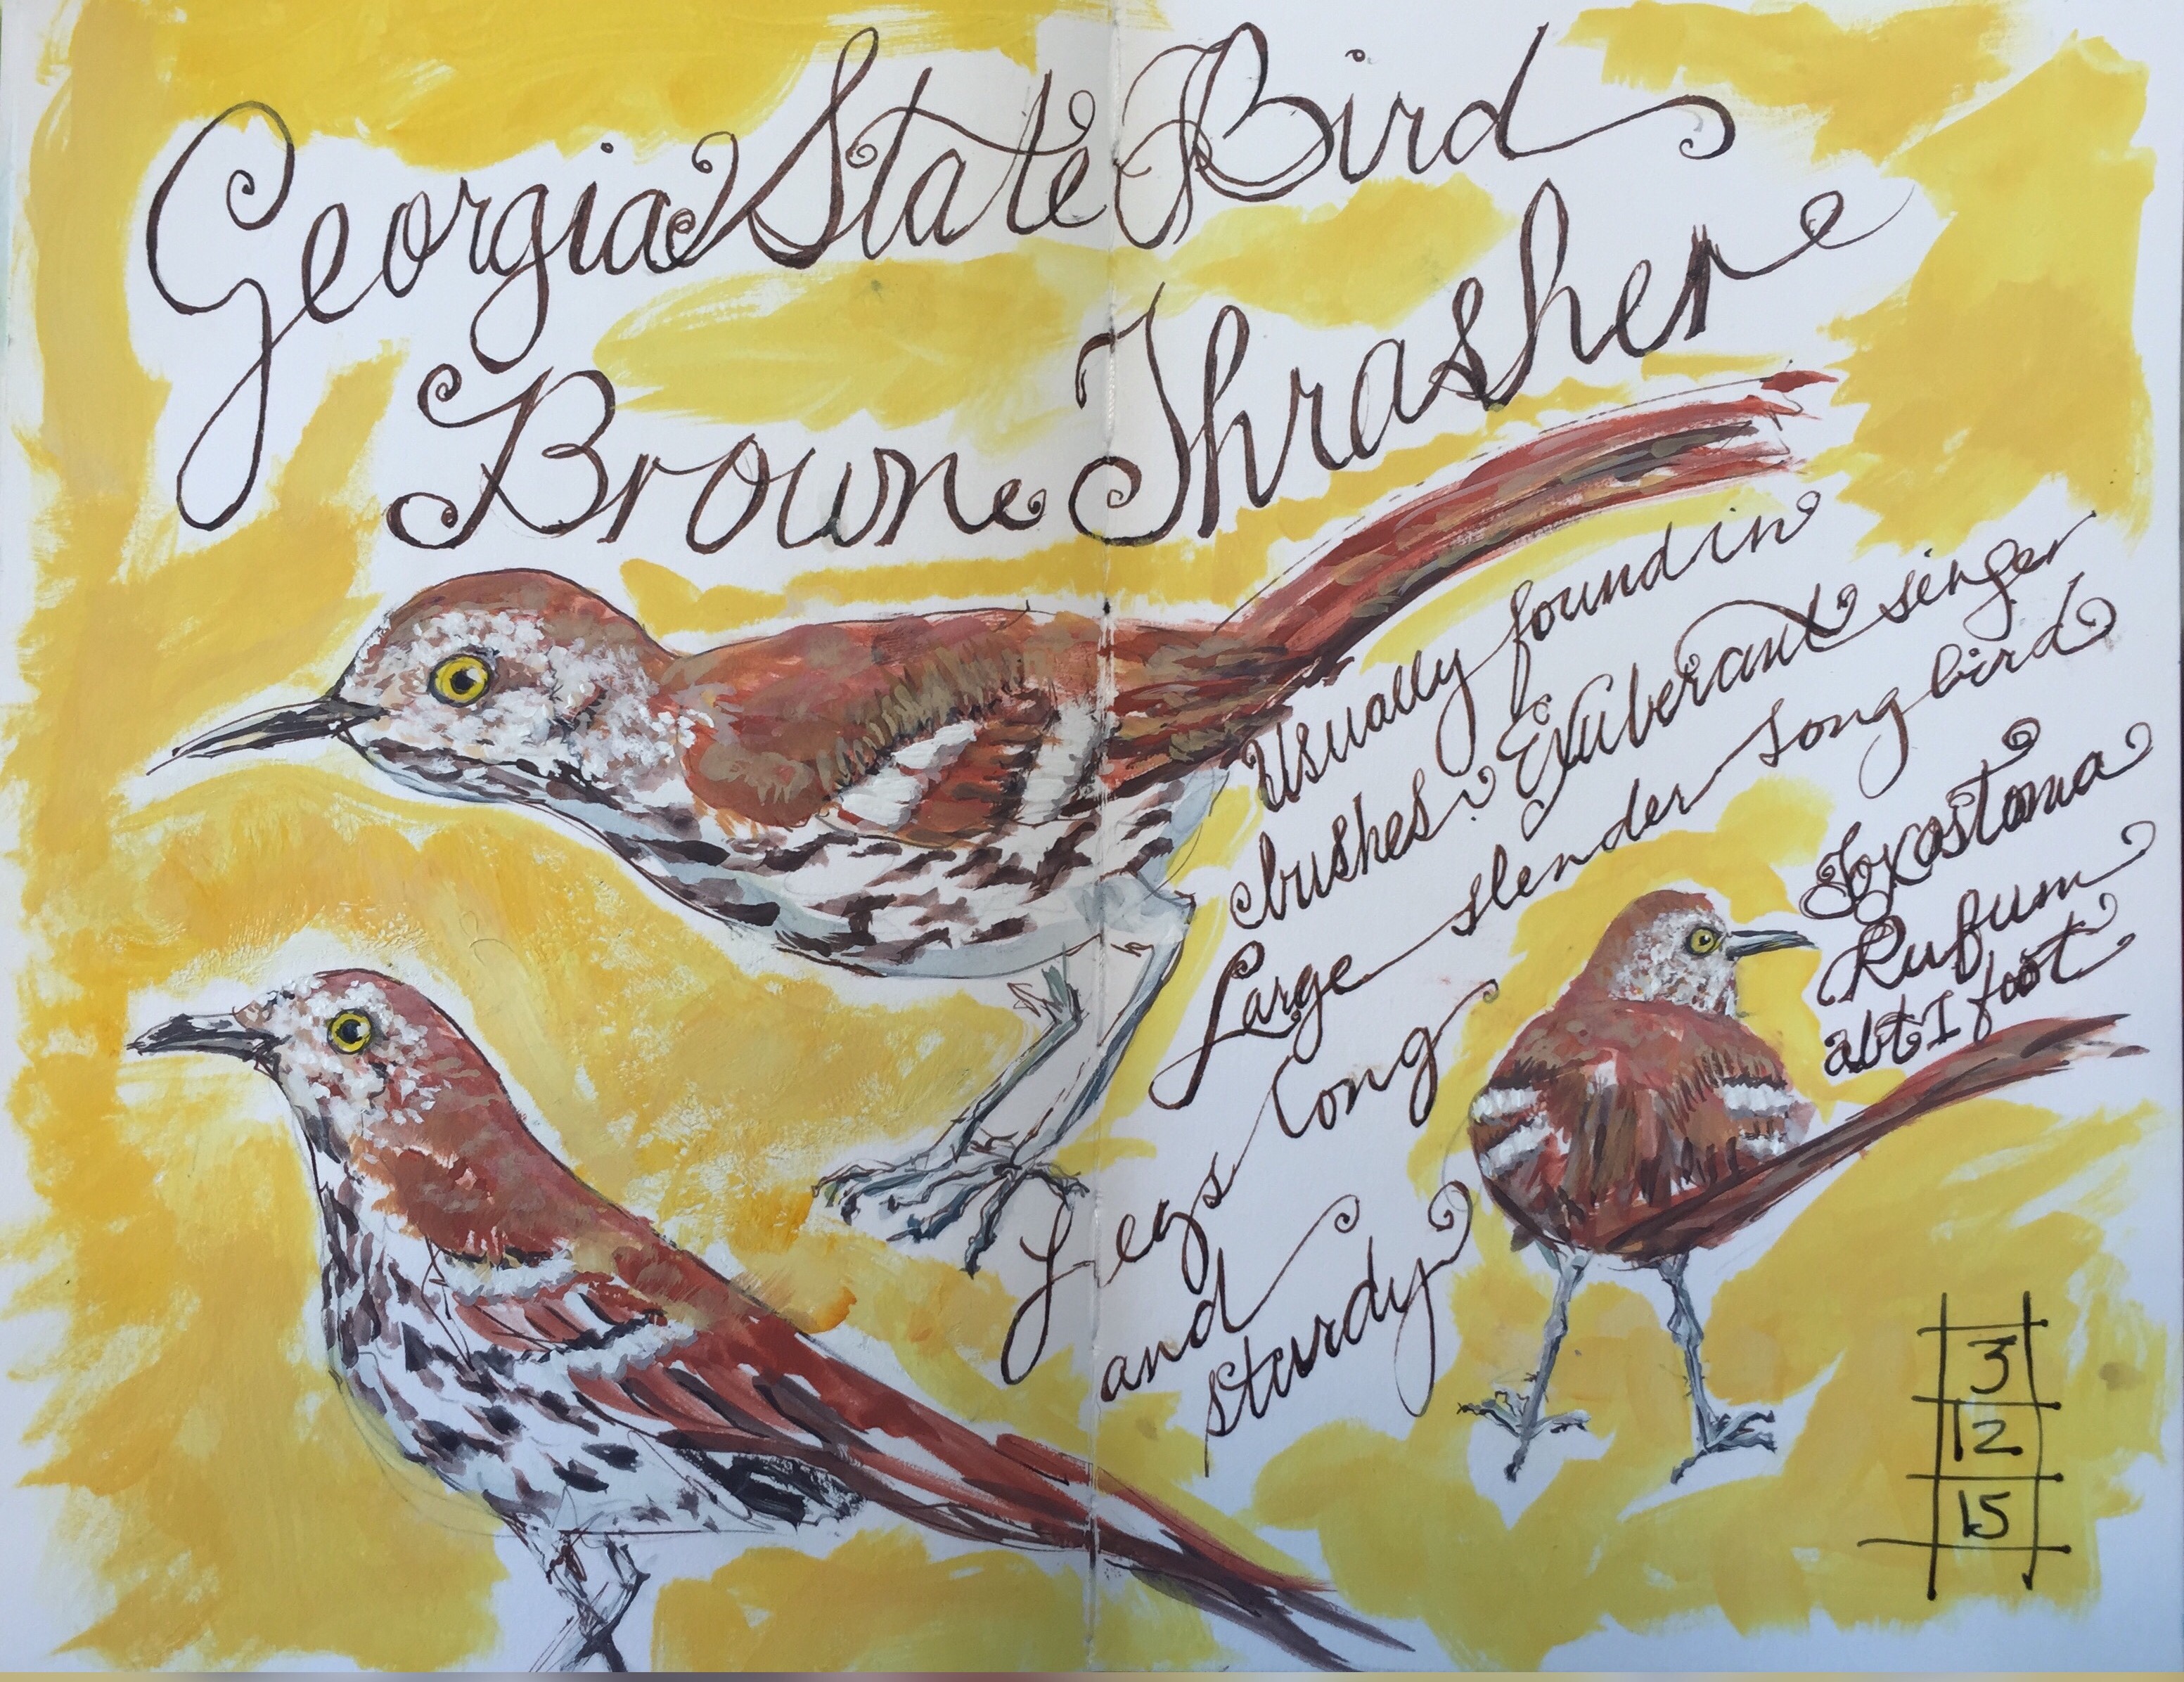 Georgia State Bird
Brown Thrasher
Usually found in
bushes. Exuberant singer
Large slender song bird
Legs long
and
sturdy
Toxostoma
Rufum
abt 1 foot
3
12
15